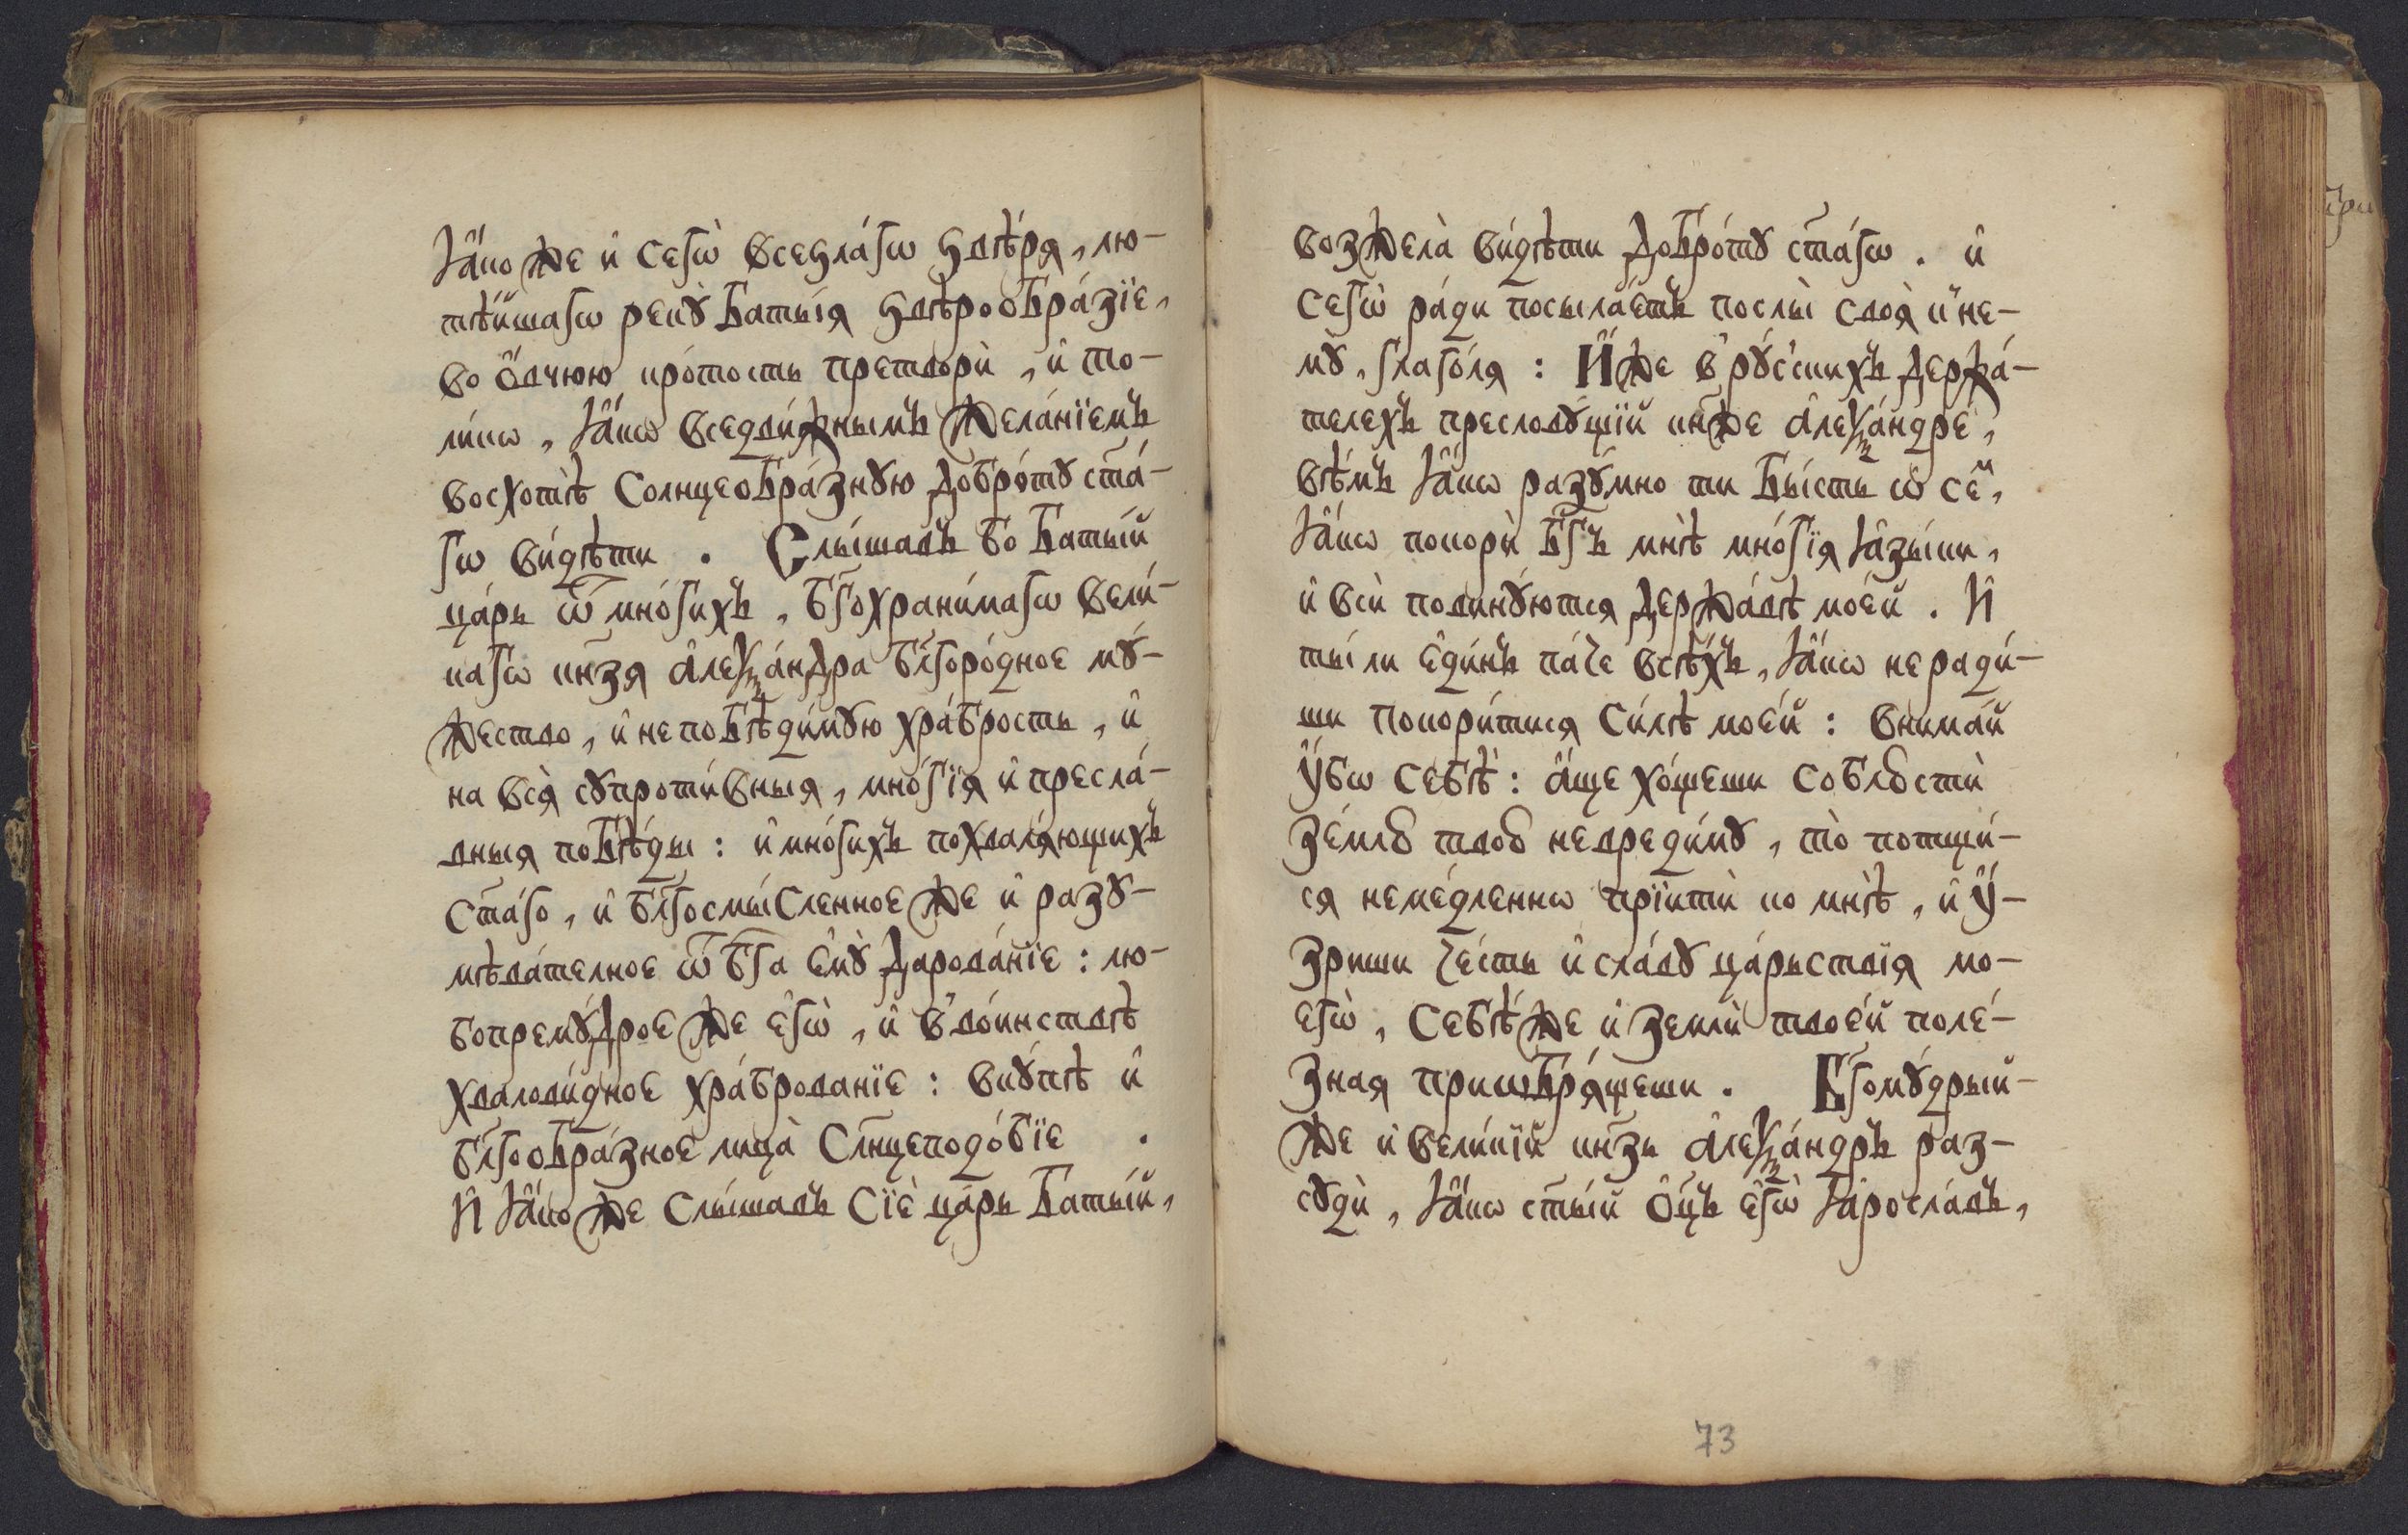 Ꙗ҆́коже и҆ сегѡ̀ всеѕла́гѡ ѕвѣ́ря, лю-
тѣ́йшагѡ рекꙋ̀ Баты́я ѕвѣрообра́зїе,
во ѻ҆́вчюю кро́тость претворѝ, и҆ то-
ли́кѡ, ꙗ҆́кѡ вседви́жнымъ жела́нїемъ
восхотѣ̀ солнцеобра́знꙋю добро́тꙋ ст҃а́-
гѡ ви́дѣти. Слы́шавъ бо Баты́й
ца́рь ѿ мно́гихъ, бг҃охрани́магѡ вели́-
кагѡ кн҃зя а҆леѯа́ндра бл҃горо́дное мꙋ́-
жество, и҆ непобѣди́мꙋю хра́брость, и҆
на вся̀ сꙋпроти́вныя, мно́гїя и҆ пресла́-
вныя побѣ́ды: и҆ мно́гихъ похваля́ющихъ
ст҃а́го, и҆ бл҃госмы́сленное же и҆ разꙋ-
мѣва́телное ѿ бг҃а є҆мꙋ̀ дарова́нїе: лю-
бопремꙋ́дрое же є҆гѡ̀, и҆ в̾ во́инствѣ
хвалови́дное хра́брованїе: вкꙋ́пѣ и҆
бл҃гообра́зное лица̀ сл҃нцеподо́бїе.
И҆ ꙗ҆́коже слы́шавъ сїѐ ца́рь Баты́й,
возжела̀ ви́дѣти добро́тꙋ ст҃а́гѡ. и҆
сегѡ̀ ра́ди посыла́етъ послы̀ своя̀ к̾ не-
мꙋ, глаго́ля: И҆́же в̾ рꙋ́сскихъ держа́-
телехъ пресловꙋ́щїй кн҃же а҆леѯа́ндре,
вѣ́мъ ꙗ҆́кѡ разꙋ́мно ти бы́сть ѡ҆ се́м,
ꙗ҆́кѡ покорѝ бг҃ъ мнѣ̀ мно́гїя ꙗ҆зы́ки,
и҆ всѝ повинꙋ́ются держа́вѣ мое́й. И҆
ты́ ли є҆ди́нъ па́че всѣ́хъ, ꙗ҆́кѡ неради́-
ши покори́тися си́лѣ мое́й: внима́й
ᲂу҆́бѡ себѣ̀: а҆́ще хо́щеши соблюстѝ
зе́млю твою невреди́мꙋ, то̀ потщи́-
ся неме́дленнѡ прїитѝ ко мнѣ̀, и҆ ᲂу҆́-
зриши че́сть и҆ сла́вꙋ ца́рьствїя мо-
егѡ̀, себѣ́ же и҆ землѝ твое́й поле́-
зная приѡбря́щеши. Бг҃омꙋ́дрый-
же и҆ вели́кїй кн҃зь а҆леѯа́ндръ раз-
сꙋдѝ, ꙗ҆́кѡ ст҃ы́й ѻ҆ц҃ъ є҆гѡ̀ ꙗ҆росла́въ,
73